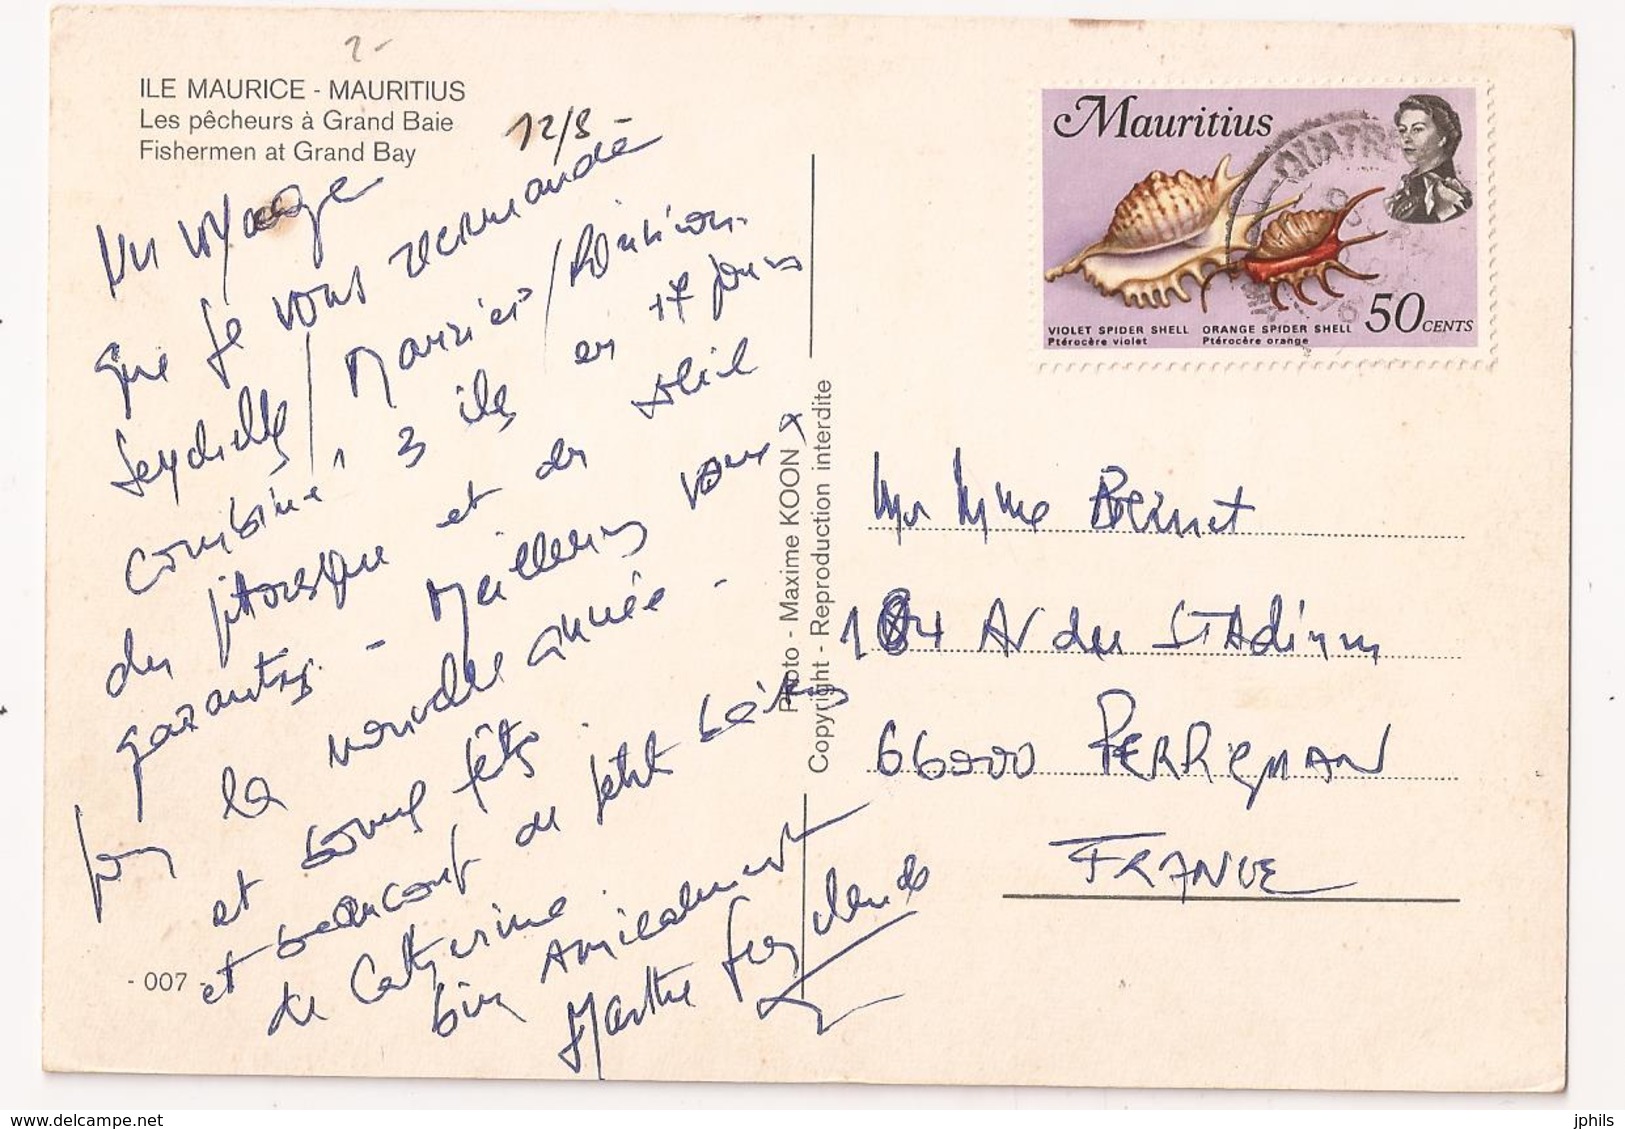 2-
ILE MAURICE - MAURITIUS
Les pêcheurs à Grand Baie
Fishermen at Grand Bay
12/8-
Un voyage
que je vous recommande
Seychelles / Maurice / Réunion.
combiné 3 iles en 17 jours
du pitoresque et du soleil
garantis. - Meilleurs vœux
pour la nouvelle année -
et bonnes fêtes
et beaucoup de petits baisers
de Catherine.
bien Amicalement
Marthe
- 007 -
Photo - Maxime KOON
Copyright - Reproduction interdite
Mauritius
VIOLET SPIDER SHELL ORANGE SPIDER SHELL
Ptérocère violet Ptérocère orange
50 CENTS
QUATRE
Mr Mme Bernet
184 Av du STAdium
66000 PERPIGNAN
FRANCE
www.delcampe.net
jphils